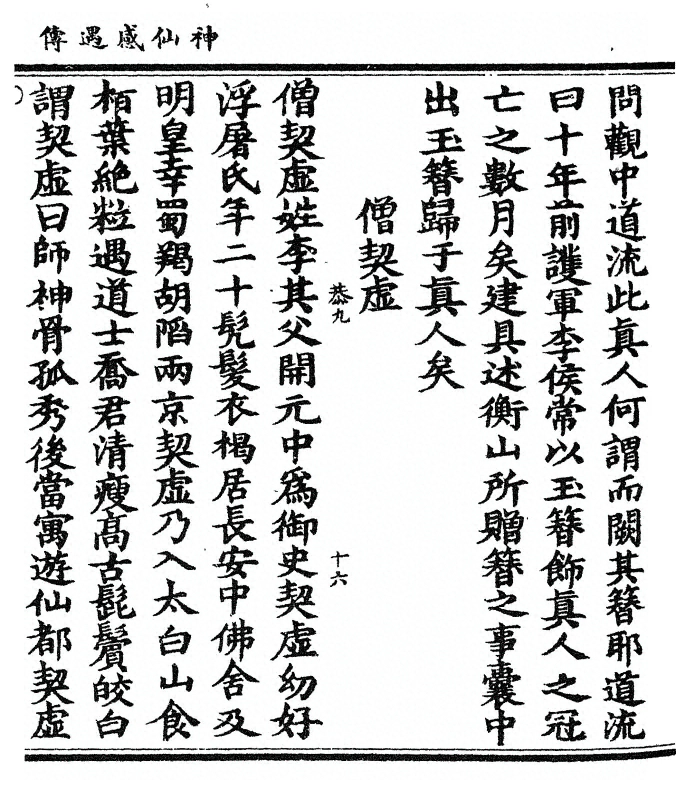 神仙感遇傳
問觀中道流此真人何謂而闕其簪耶道流
曰十年前護軍李侯常以玉簪飾真人之冠
亡之數月矣建具述衡山所贈簪之事囊中
出玉簪歸于真人矣
僧契虛
恭九
十六
僧契虛姓李其父開元中為御史契虛幼好
浮屠氏年二十髡髮衣褐居長安中佛舍及
明皇幸蜀羯胡陷兩京契虛乃入太白山食
栢葉絕粒遇道士喬君清瘦高古髭鬢皎白
謂契虛曰師神骨孤秀後當寓遊仙都契虛